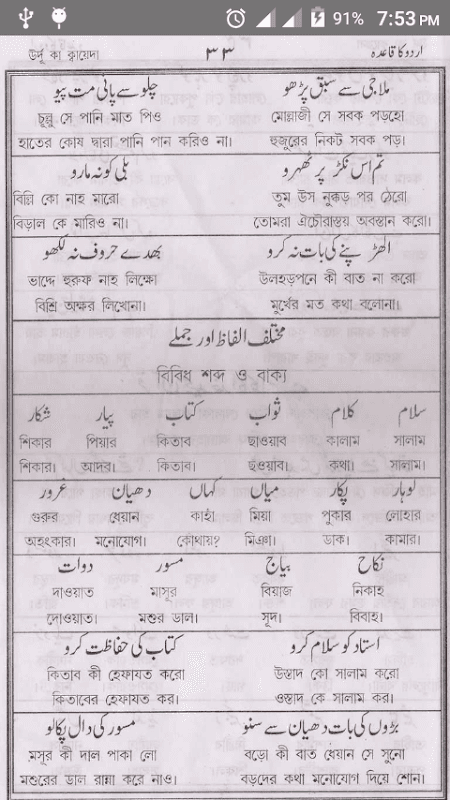 91% 7:53 PM
উর্দু কা ক্বায়েদা ٣٣ اردو کا قاعدہ
ملا جی سے سبق پڑھو چلو سے پانی مت پیو
চুল্লু সে পানি মাত পিও মোল্লাজী সে সবক পড়হো
হাতের কোষ দ্বারা পানি পান করিও না। হুজুরের নিকট সবক পড়।
تم اس نکڑ پر ٹھہرو بلی کو نہ مارو
বিল্লি কো নাহ মারো তুম উস নুক্কড় পর ঠেরো
বিড়াল কে মারিও না। তোমরা ঐচৌরাস্তায় অবস্তান করো।
الھڑ پنے کی بات نہ کرو بھدے حروف نہ لکھو
ভাদ্দে হুরুফ নাহ লিক্ষো উলহড়পনে কী বাত না করো
বিশ্রি অক্ষর লিখোনা। মুর্খের মত কথা বলোনা।
مختلف الفاظ اور جملے
বিবিধ শব্দ ও বাক্য
سلام کلام ثواب کتاب پیار شکار
শিকার পিয়ার কিতাব ছাওয়াব কালাম সালাম
শিকার। আদর। কিতাব। ছওয়াব। কথা। সালাম।
لوہار پکار میاں کہاں دھیان غرور
গুরুর ধেয়ান কাহাঁ মিয়া পুকার লোহার
অহংকার। মনোযোগ। কোথায়? মিঞা। ডাক। কামার।
نکاح بیاج مسور دوات
দাওয়াত মাসুর বিয়াজ নিকাহ
দোওয়াত। মশুর ডাল। সূদ। বিবাহ।
استاد کو سلام کرو کتاب کی حفاظت کرو
কিতাব কী হেফাযত করো উস্তাদ কো সালাম করো
কিতাবের হেফাযত কর। ওস্তাদ কে সালাম কর।
بڑوں کی بات دھیان سے سنو مسور کی دال پکالو
মসূর কী দাল পাকা লো বড়ো কী বাত ধেয়ান সে সুনো
মশুরের ডাল রান্না করে নাও। বড়দের কথা মনোযোগ দিয়ে শোন।